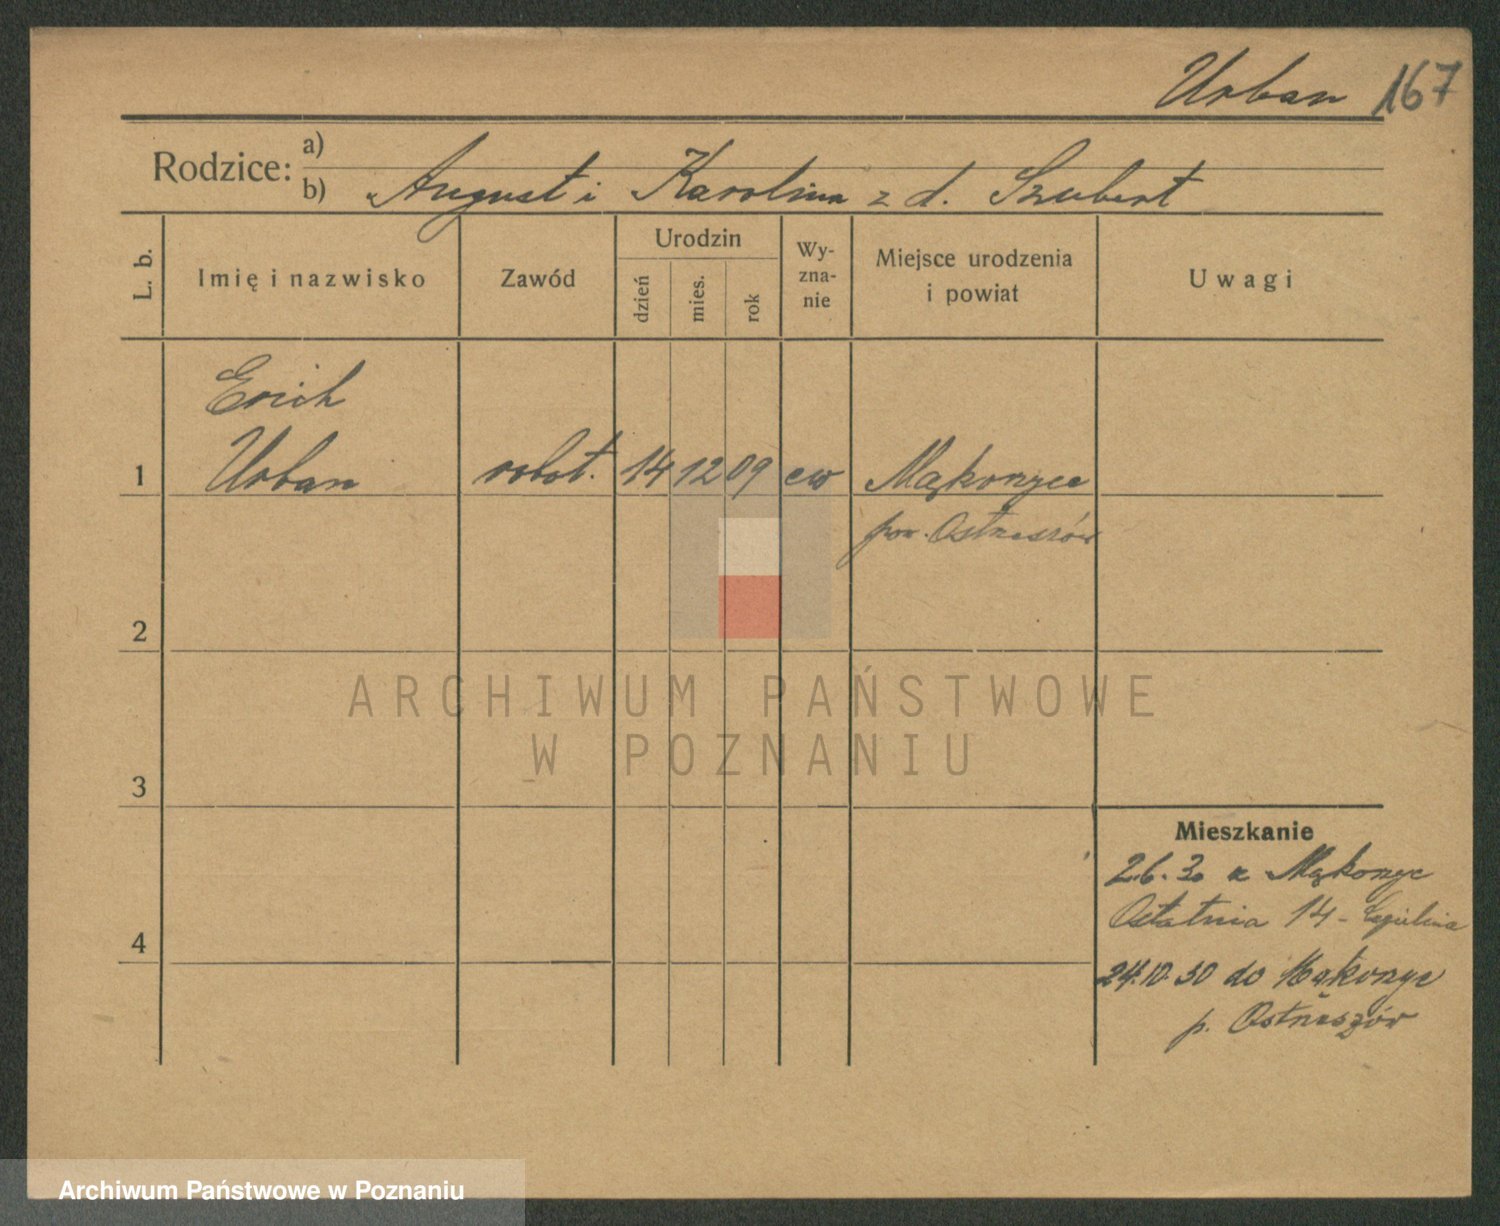 Urban 167
Rodzice: a)
b) August i Karolina z d. Szubert
L. b.
Imię i nazwisko
Zawód
Urodzin
dzień
mies.
rok
Wy-
zna-
nie
Miejsce urodzenia
i powiat
Uwagi
Erich
1 Urban robot. 14 12 09 ew Mąkonyce
pow. Ostrzeszów
2
3
4
Mieszkanie
2.6.30 z Mąkonyc
Ostatnia 14 -
24.10.30 do Mąkonyc
p. Ostrzeszów
ARCHIWUM PAŃSTWOWE
W POZNANIU
Archiwum Państwowe w Poznaniu